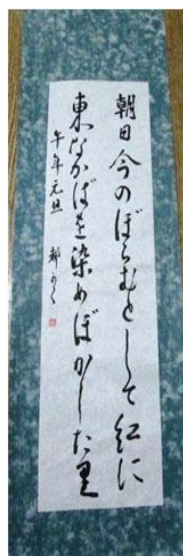 朝日今のぼらむとして紅に
東なかばを染めぼかしたり
午年元旦